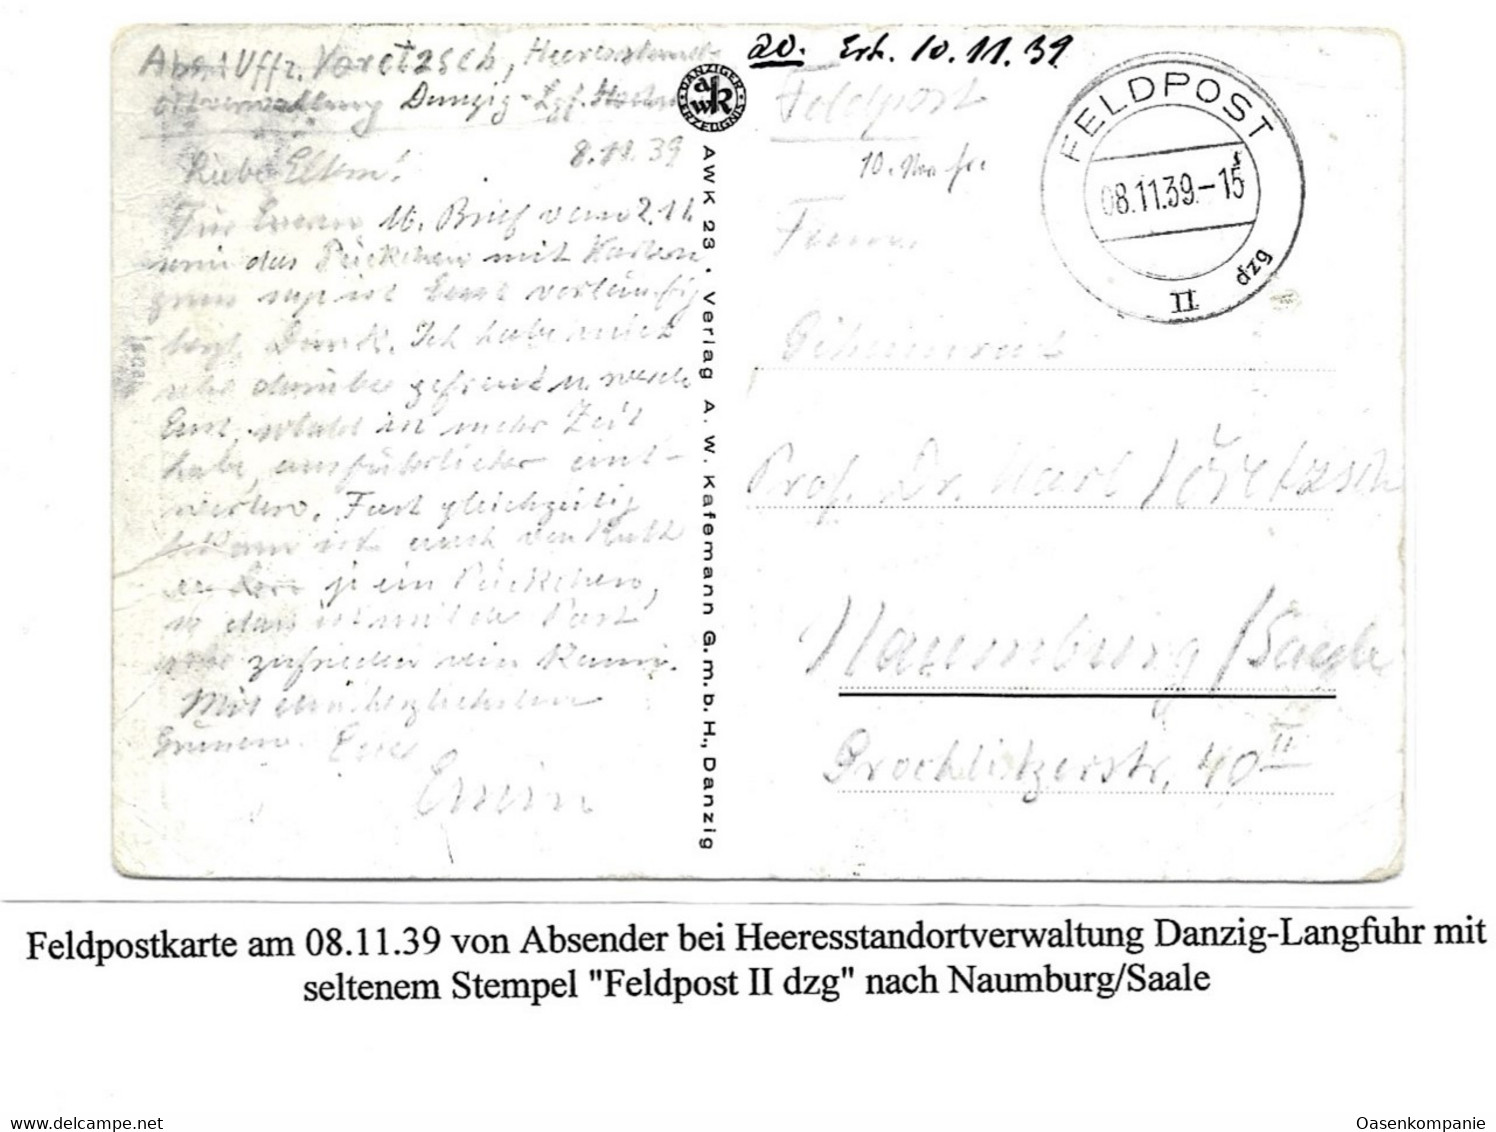 Abs.: Uffz. Voretzsch, Heeresstand-
ortverwaltung Danzig-Lgf.
8.11.39
Liebe Eltern!
Für Euern 16. Brief vom 2.11.
und das Päckchen mit
vorläufig
Dank. Ich habe mich
sehr darüber gefreut u. werde
Euch, sobald ich mehr Zeit
habe, ausführlicher ant-
worten. Fast gleichzeitig
bekam ich auch von Ruth
je ein Päckchen,
so dass ich mit der Post
sehr zufrieden sein kann.
Mit den herzlichsten
Grüssen Euer
Erwin
DANZIGER
awk
ERZEUGNIS
AWK 23 · Verlag A. W. Kafemann G.m.b.H., Danzig
20. Erh. 10.11.39
Feldpost
10. Nov.
FELDPOST
08.11.39.-15
II
dzg
Geheimrat
Prof. Dr. Karl Voretzsch
Naumburg/Saale
Grochlitzerstr. 40 II
Feldpostkarte am 08.11.39 von Absender bei Heeresstandortverwaltung Danzig-Langfuhr mit
seltenem Stempel "Feldpost II dzg" nach Naumburg/Saale
www.delcampe.net
Oasenkompanie